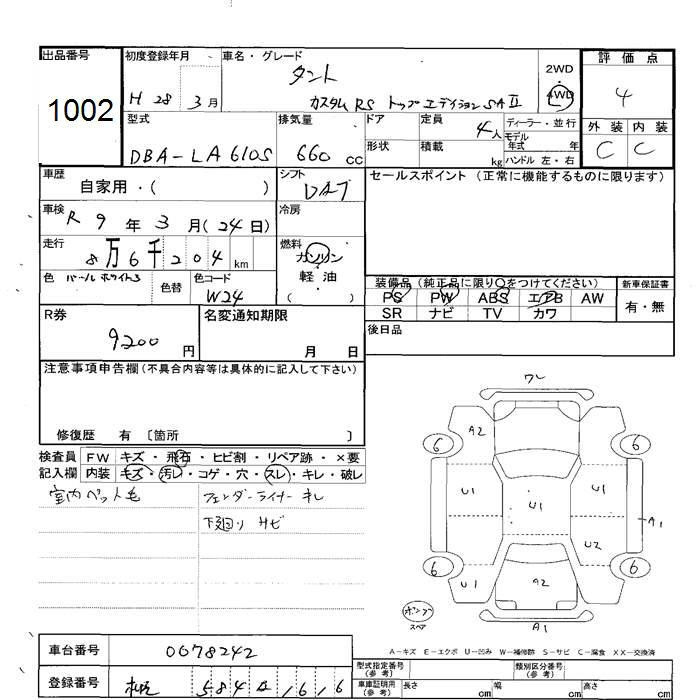 出品番号 初度登録年月 車名・グレード 評価点
1002 H 28 3月 タント 2WD 4WD 4
カスタム RS トップエディション SAⅡ
型式 排気量 ドア 定員 4人 ディーラー・並行 外装 内装
DBA-LA610S 660 cc 形状 積載 kg モデル年式 年式 ハンドル 左・右 C C
車歴 シフト セールスポイント (正常に機能するものに限ります)
自家用・( )
車検 R 9年 3月(24日) 冷房
走行 8万6千204km 燃料 ガソリン
軽・油
( )
色 パールホワイト3 色替 色コード W24
装備品 (純正品に限り○をつけてください) 新車保証書
PS PW ABS エアB AW 有・無
SR ナビ TV カワ
R券 9200円 名変通知期限 月 日 後日品
注意事項申告欄(不具合内容等は具体的に記入して下さい)
修復歴 有 〔箇所 〕
検査員 FW キズ・飛石・ヒビ割・リペア跡・×要
記入欄 内装 キズ・汚レ・コゲ・穴・スレ・キレ・破レ
室内ペット毛 フェンダーライナーキレ
下廻りサビ
ワレ
A2
6 6
U1 U1 U1 A1
U2
6 6
U1 A2
スペア A1
A-キズ E-エクボ U-凹み W-補修跡 S-サビ C-腐食 XX-交換済
車台番号 0078242
登録番号 札幌 584 1616
型式指定番号(参考) 類別区分番号(参考)
車庫証明用(参考) 長さ cm 幅 cm 高さ cm